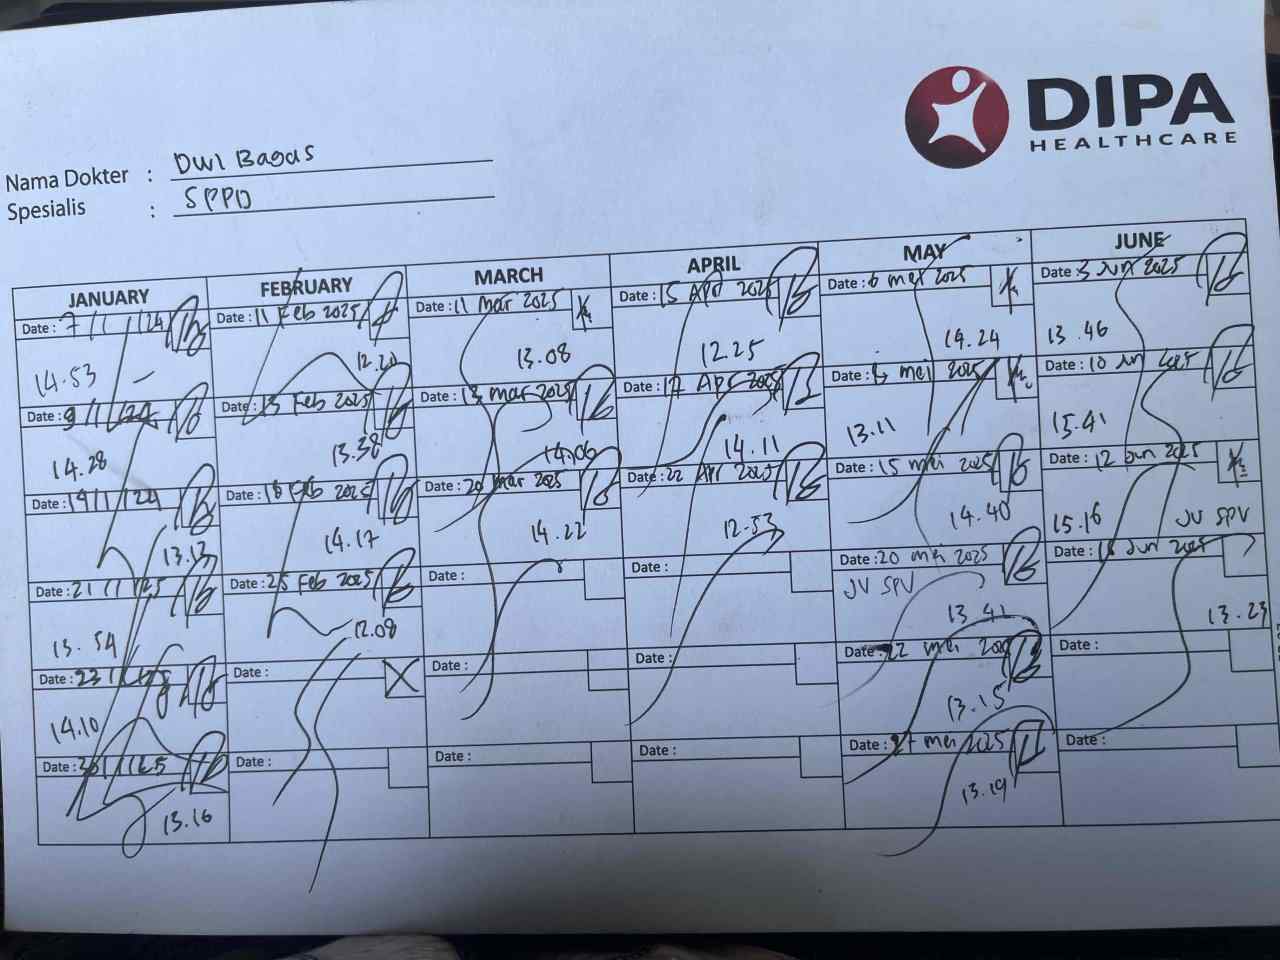 DIPA
HEALTHCARE
Nama Dokter : Dwi Bagas
Spesialis : SPPD
JANUARY
Date : 7/1/24
14.53
Date : 9/1/24
14.28
Date : 14/1/24
13.13
Date : 21/1/25
13.54
Date : 23/1/25
14.10
Date : 30/1/25
13.16
FEBRUARY
Date : 11 Feb 2025
12.20
Date : 13 Feb 2025
13.38
Date : 18 Feb 2025
14.17
Date : 25 Feb 2025
12.08
Date :
Date :
MARCH
Date : 11 Mar 2025
13.08
Date : 13 mar 2025
14.06
Date : 20 mar 2025
14.22
Date :
Date :
Date :
APRIL
Date : 15 Apr 2025
12.25
Date : 17 Apr 2025
14.11
Date : 22 Apr 2025
12.53
Date :
Date :
Date :
MAY
Date : 6 mei 2025
14.24
Date : mei 2025
13.11
Date : 15 mei 2025
14.40
Date : 20 mei 2025
JV SPV
13.41
Date : 22 mei 2025
13.15
Date : 27 mei 2025
13.19
JUNE
Date : 3 Jun 2025
13.46
Date : 10 Jun 2025
15.41
Date : 12 Jun 2025
15.16 JV SPV
Date : Jun 2025
13.23
Date :
Date :